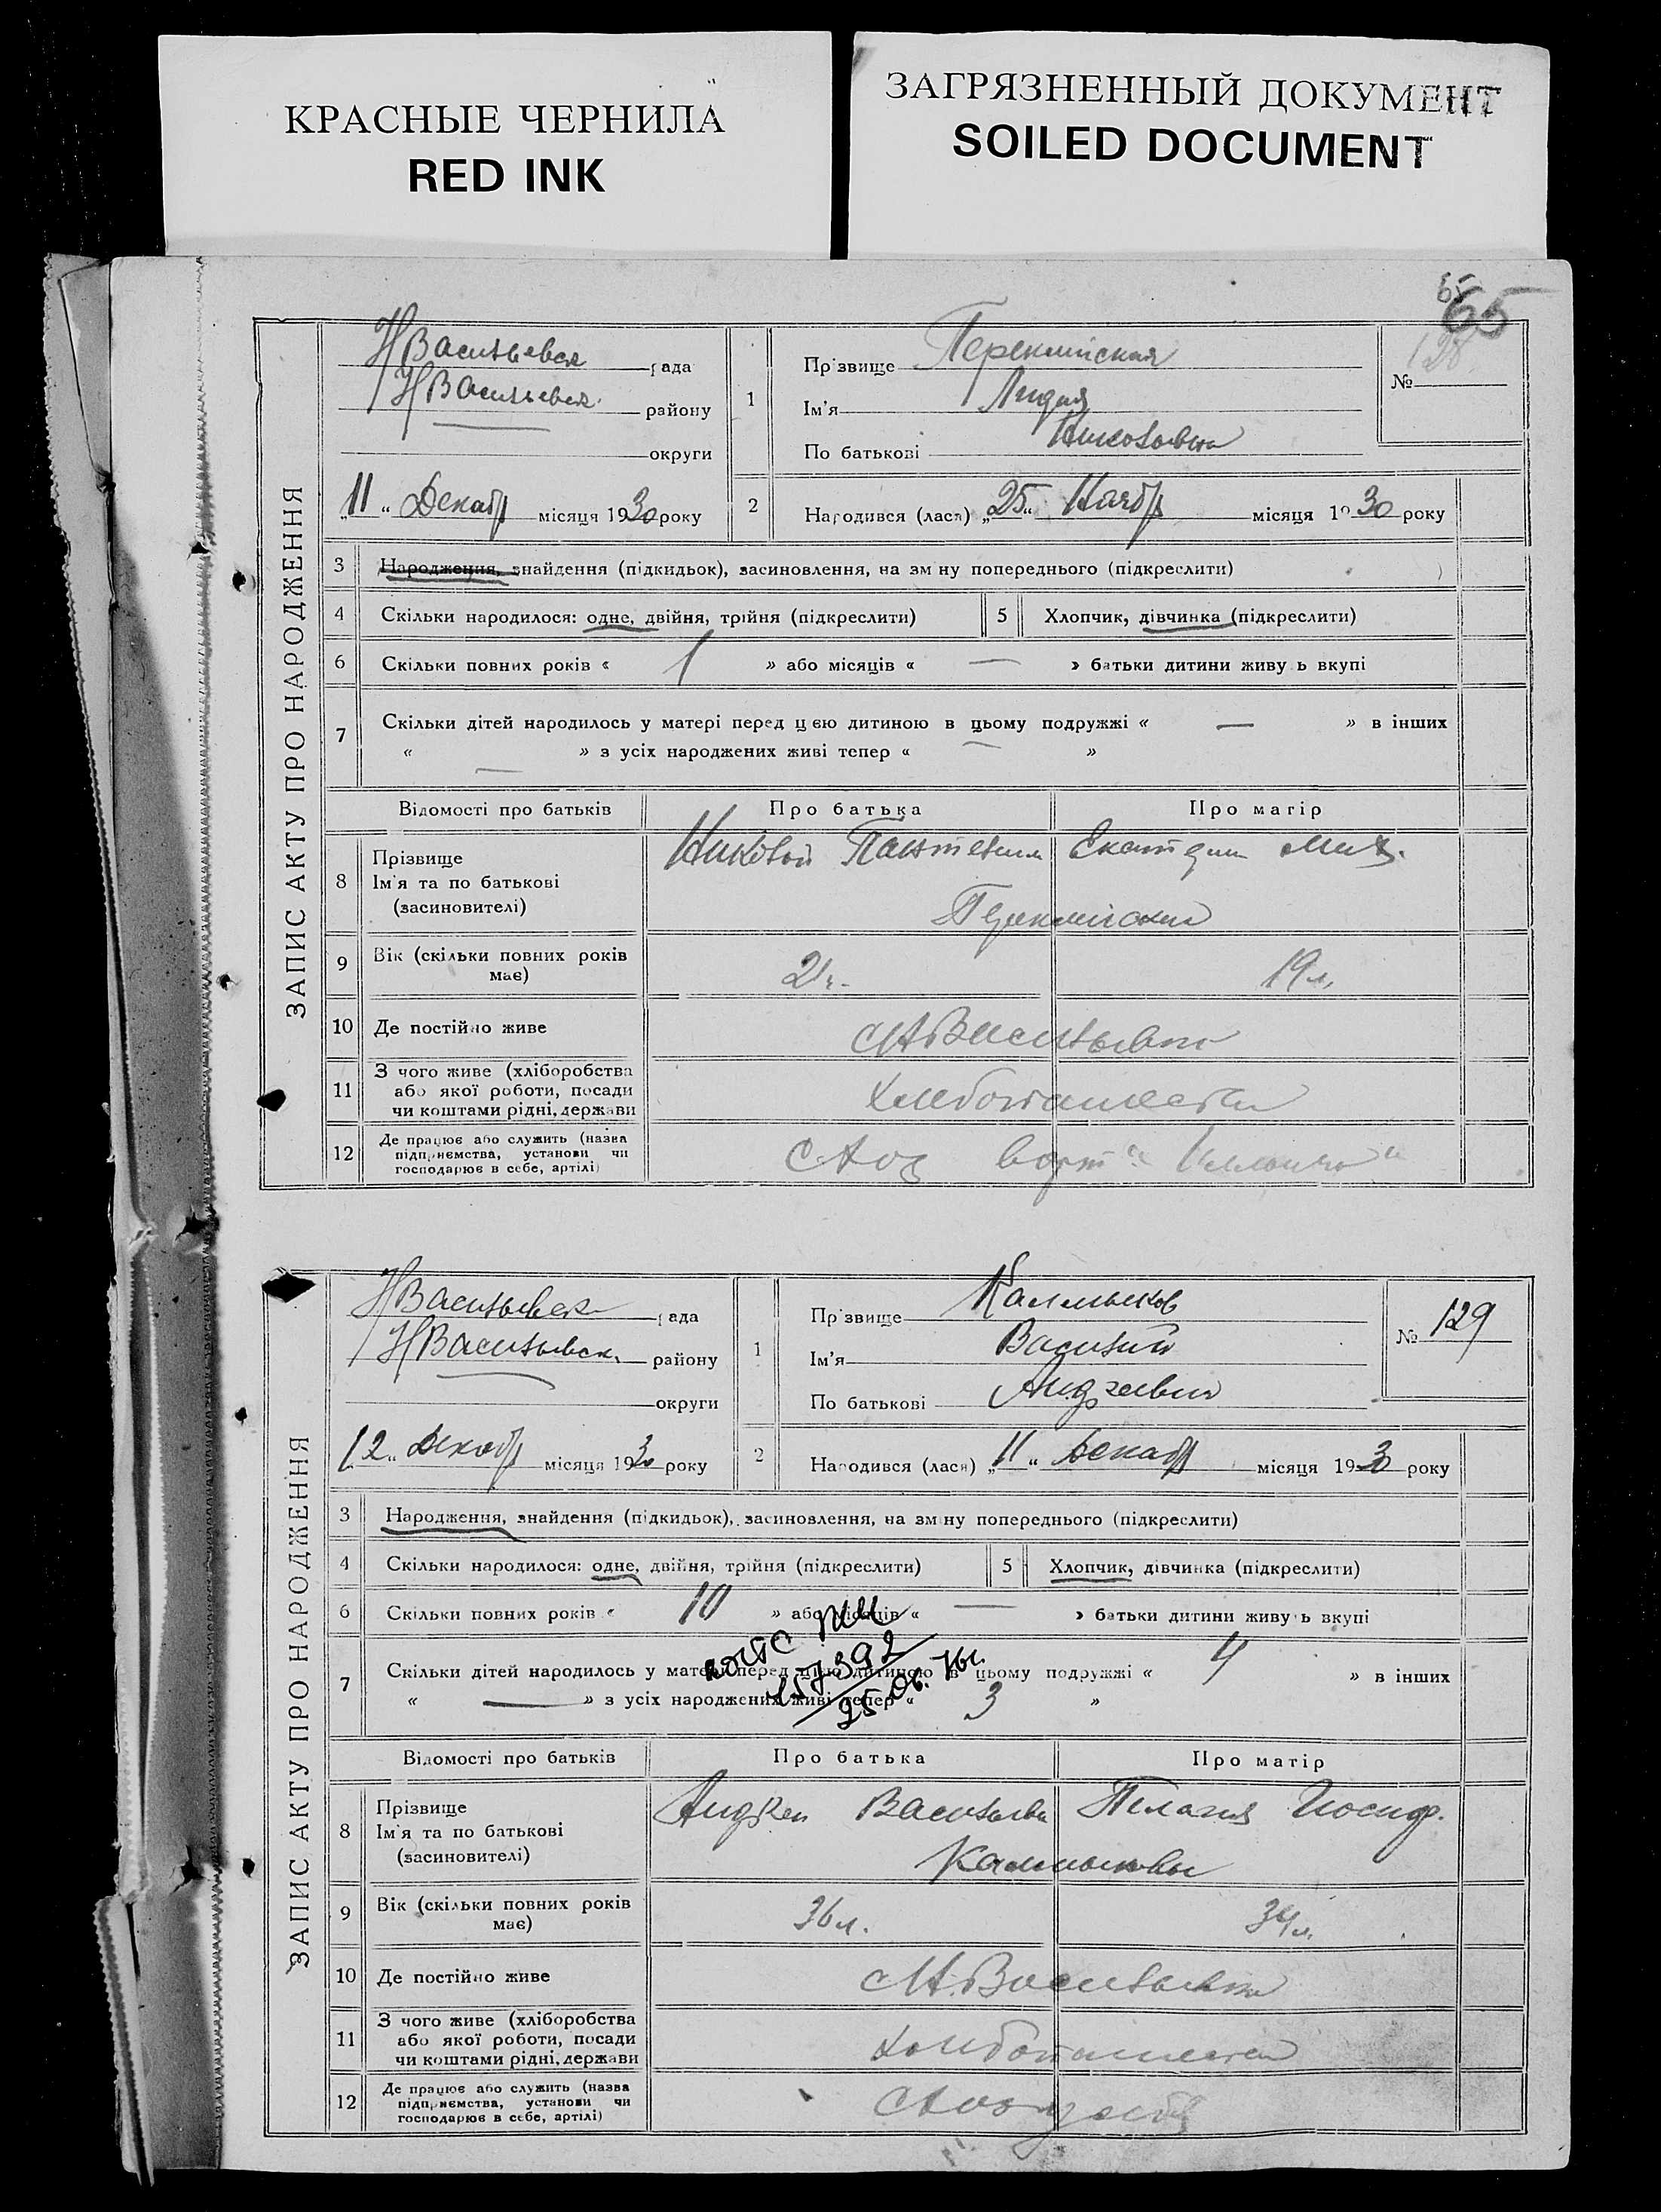 КРАСНЫЕ ЧЕРНИЛА
RED INK
ЗАГРЯЗНЕННЫЙ ДОКУМЕНТ
SOILED DOCUMENT
65
65
ЗАПИС АКТУ ПРО НАРОДЖЕННЯ
НВасильевск рада
НВасильевск. району
округи
„11“ Декабр місяця 1930 року
1
Прізвище
Ім'я Лидия
По батькові Николаевна
№ 128
2 Народився (лася) „25“ Ноябр місяця 1930 року
3 Народження, знайдення (підкидьок), засиновлення, на зміну попереднього (підкреслити)
4 Скільки народилося: одне, двійня, трійня (підкреслити) 5 Хлопчик, дівчинка (підкреслити)
6 Скільки повних років « 1 » або місяців « — » батьки дитини живуть вкупі
7 Скільки дітей народилось у матері перед цією дитиною в цьому подружжі « — » в інших
« — » з усіх народжених живі тепер « — »
Відомості про батьків Про батька Про матір
8 Прізвище
Ім'я та по батькові
(засновителі)
Николай Екатерин Мих.
9 Вік (скільки повних років має) 21г. 19л.
10 Де постійно живе с НВасильевка
11 З чого живе (хліборобства або якої роботи, посади чи коштами рідні, держави
хлебопашество
12 Де працює або служить (назва підприємства, установи чи господарює в себе, артілі)
ЗАПИС АКТУ ПРО НАРОДЖЕННЯ
НВасильевск рада
НВасильевск. району
округи
„12“ Декабр місяця 1930 року
1
Прізвище Калмыков
Ім'я Василий
По батькові Андреевич
№ 129
2 Народився (лася) „11“ Декабр місяця 1930 року
3 Народження, знайдення (підкидьок), засиновлення, на зміну попереднього (підкреслити)
4 Скільки народилося: одне, двійня, трійня (підкреслити) 5 Хлопчик, дівчинка (підкреслити)
6 Скільки повних років « 10 » або місяців « — » батьки дитини живуть вкупі
7 Скільки дітей народилось у матері перед цією дитиною в цьому подружжі « 4 » в інших
« — » з усіх народжених живі тепер « 3 »
157392
25.06.76г.
Відомості про батьків Про батька Про матір
8 Прізвище
Ім'я та по батькові
(засиновителі)
Андрей Васильеви Пелагия Иосиф.
Калмыковы
9 Вік (скільки повних років має) 36л. 34л.
10 Де постійно живе с Н.Васильевка
11 З чого живе (хліборобства або якої роботи, посади чи коштами рідні, держави
хлебопашество
12 Де працює або служить (назва підприємства, установи чи господарює в себе, артілі)